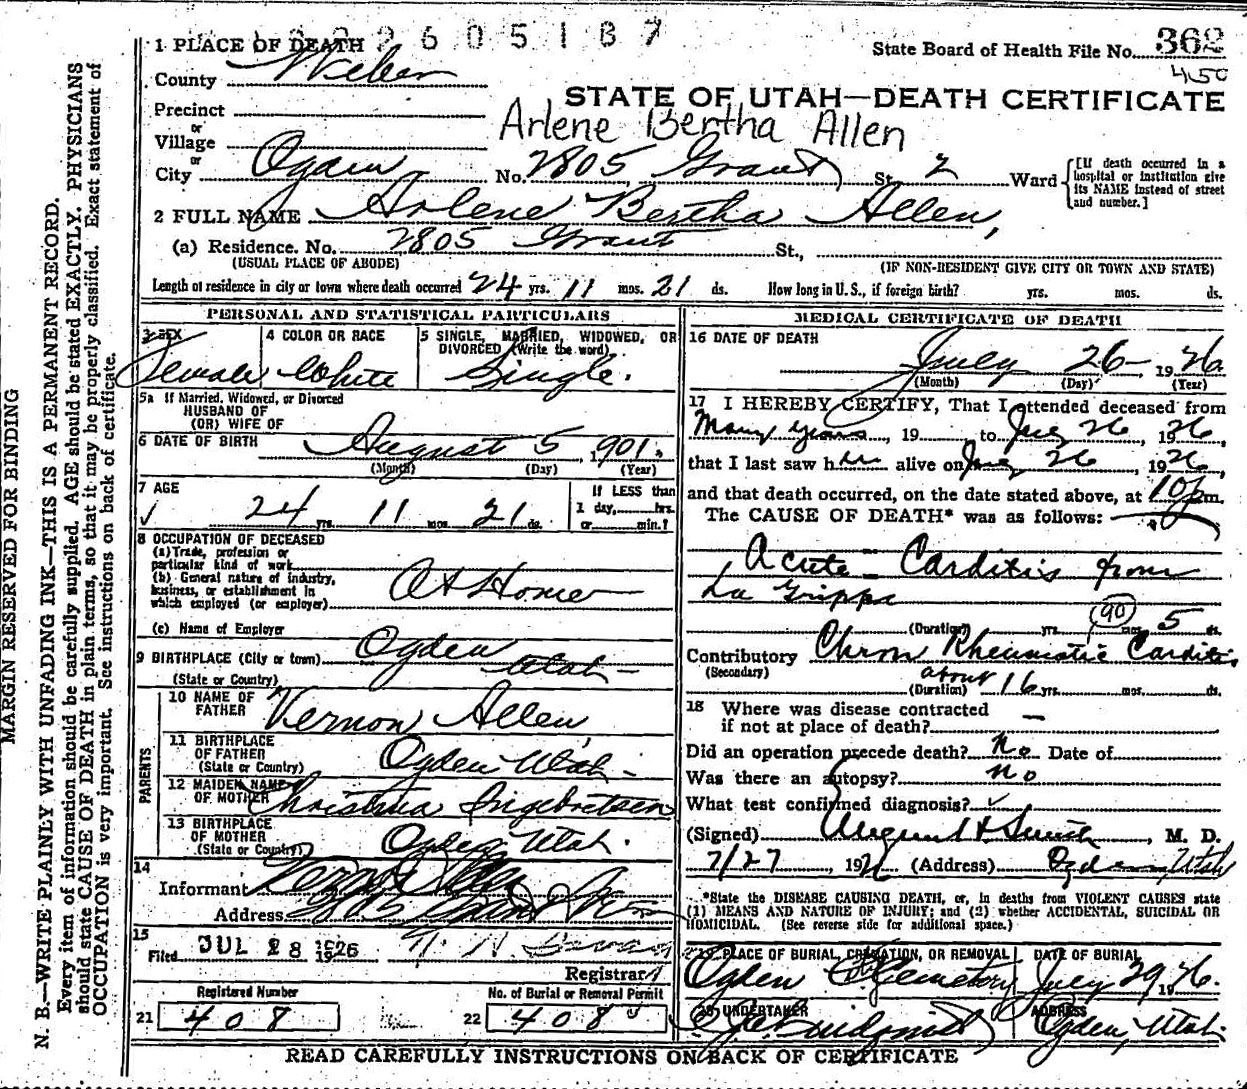 2 6 0 5 1 8 7
State Board of Health File No. 362
450
STATE OF UTAH—DEATH CERTIFICATE
Arlene Bertha Allen
1 PLACE OF DEATH
County Weber
Precinct
or
Village
or
City Ogden No. 2805 Grant St. 2 Ward
[If death occurred in a hospital or institution give its NAME instead of street and number.]
2 FULL NAME Arlene Bertha Allen,
(a) Residence. No. 2805 Grant St.,
(USUAL PLACE OF ABODE) (IF NON-RESIDENT GIVE CITY OR TOWN AND STATE)
Length of residence in city or town where death occurred 24 yrs. 11 mos. 21 ds. How long in U. S., if foreign birth? yrs. mos. ds.
PERSONAL AND STATISTICAL PARTICULARS
3 SEX
Female
4 COLOR OR RACE
White
5 SINGLE, MARRIED, WIDOWED, OR DIVORCED (Write the word)
Single.
5a If Married, Widowed, or Divorced
HUSBAND OF
(OR) WIFE OF
6 DATE OF BIRTH August 5, 1901.
(Month) (Day) (Year)
7 AGE
24 yrs. 11 mos. 21 ds.
If LESS than
1 day, hrs.
or min.?
8 OCCUPATION OF DECEASED
(a) Trade, profession or
particular kind of work
(b) General nature of industry,
business, or establishment in
which employed (or employer)
At Home
(c) Name of Employer
9 BIRTHPLACE (City or town) Ogden
(State or Country) Utah
PARENTS
10 NAME OF FATHER Vernon Allen,
11 BIRTHPLACE OF FATHER
(State or Country) Ogden Utah
12 MAIDEN NAME OF MOTHER Christina Ingebretsen
13 BIRTHPLACE OF MOTHER
(State or Country) Ogden Utah.
14
Informant Vernon Allen
Address
15
Filed JUL 28 1926
Registrar
Registered Number
21 408
No. of Burial or Removal Permit
22 408
MEDICAL CERTIFICATE OF DEATH
16 DATE OF DEATH
July 26 1926
(Month) (Day) (Year)
17 I HEREBY CERTIFY, That I attended deceased from
Many years, 19 to July 26, 1926,
that I last saw her alive on July 26, 1926,
and that death occurred, on the date stated above, at 10 p m.
The CAUSE OF DEATH* was as follows:
Acute Carditis from
La Grippe
90
(Duration) yrs. mos. 5 ds.
Contributory Chron Rheumatic Carditis
(Secondary)
about
(Duration) 16 yrs. mos. ds.
18 Where was disease contracted
if not at place of death? —
Did an operation precede death? No Date of
Was there an autopsy? no
What test confirmed diagnosis?
(Signed) Smith, M. D.
7/27, 1926 (Address) Ogden, Utah
*State the DISEASE CAUSING DEATH, or, in deaths from VIOLENT CAUSES state
(1) MEANS AND NATURE OF INJURY; and (2) whether ACCIDENTAL, SUICIDAL OR
HOMICIDAL. (See reverse side for additional space.)
19 PLACE OF BURIAL, CREMATION, OR REMOVAL
Ogden City Cemetery
DATE OF BURIAL
July 29 1926.
20 UNDERTAKER
ADDRESS
Ogden, Utah.
READ CAREFULLY INSTRUCTIONS ON BACK OF CERTIFICATE
MARGIN RESERVED FOR BINDING
N. B.—WRITE PLAINLY WITH UNFADING INK—THIS IS A PERMANENT RECORD.
Every item of information should be carefully supplied. AGE should be stated EXACTLY. PHYSICIANS
should state CAUSE OF DEATH in plain terms, so that it may be properly classified. Exact statement of
OCCUPATION is very important. See instructions on back of certificate.